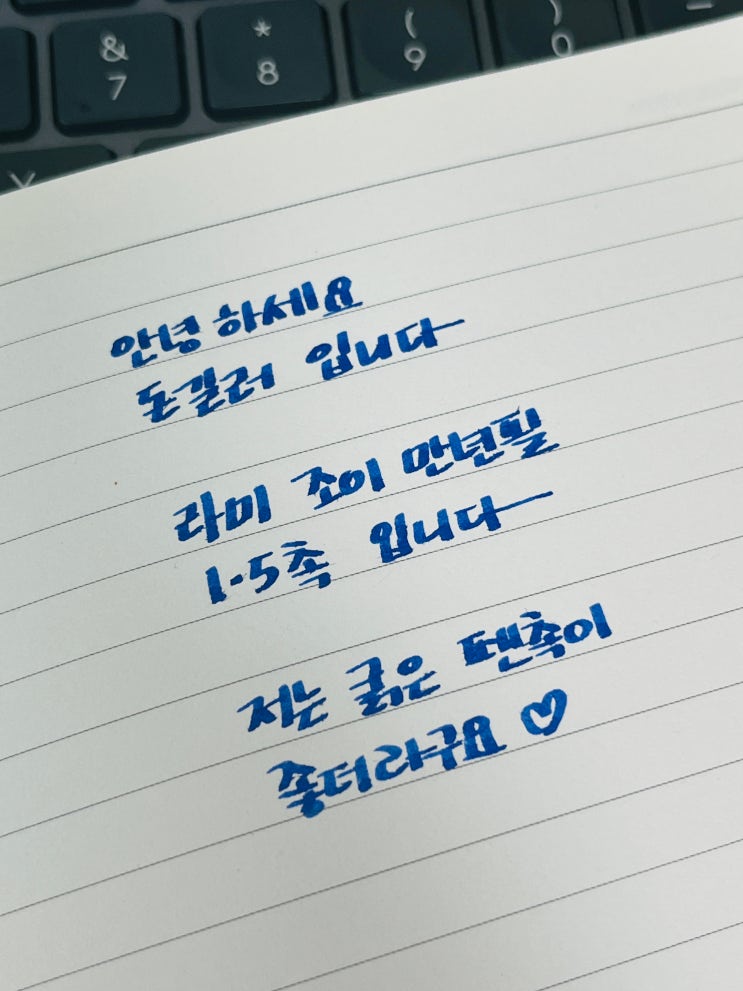 & * ( )
7 8 9 0
안녕하세요
돈길러 입니다
라미 조이 만년필
1.5촉 입니다
저는 굵은 펜촉이
좋더라구요 ♡